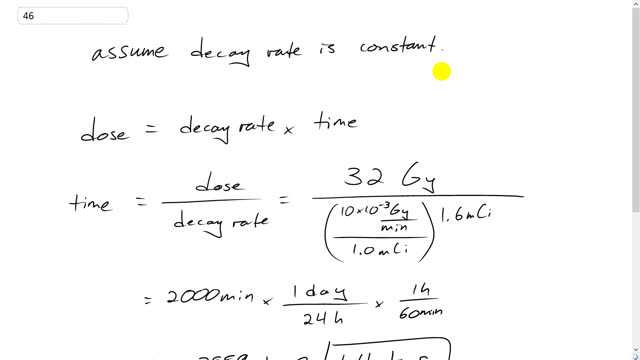 46
assume decay rate is constant.
dose = decay rate × time
time = dose / decay rate = 32 Gy / ( (10×10⁻³ Gy/min / 1.0 mCi) 1.6 mCi )
= 2000 min × 1 day / 24 h × 1 h / 60 min